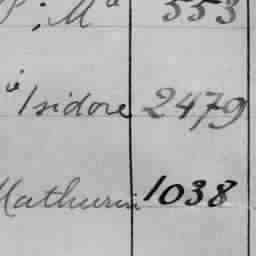 Ma 553
Isidore 2479
Mathurin 1038